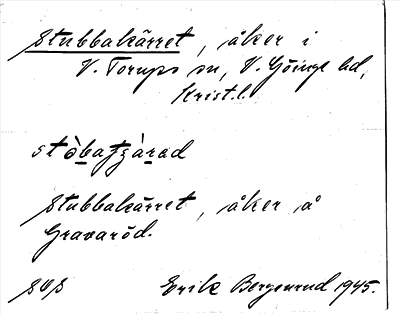 Stubbakärret, åker i
V. Torups sn, V. Göinge hd,
Krist. l.
Stubbakärret, åker på
Gravaröd.
Erik Bergenrud 1945.